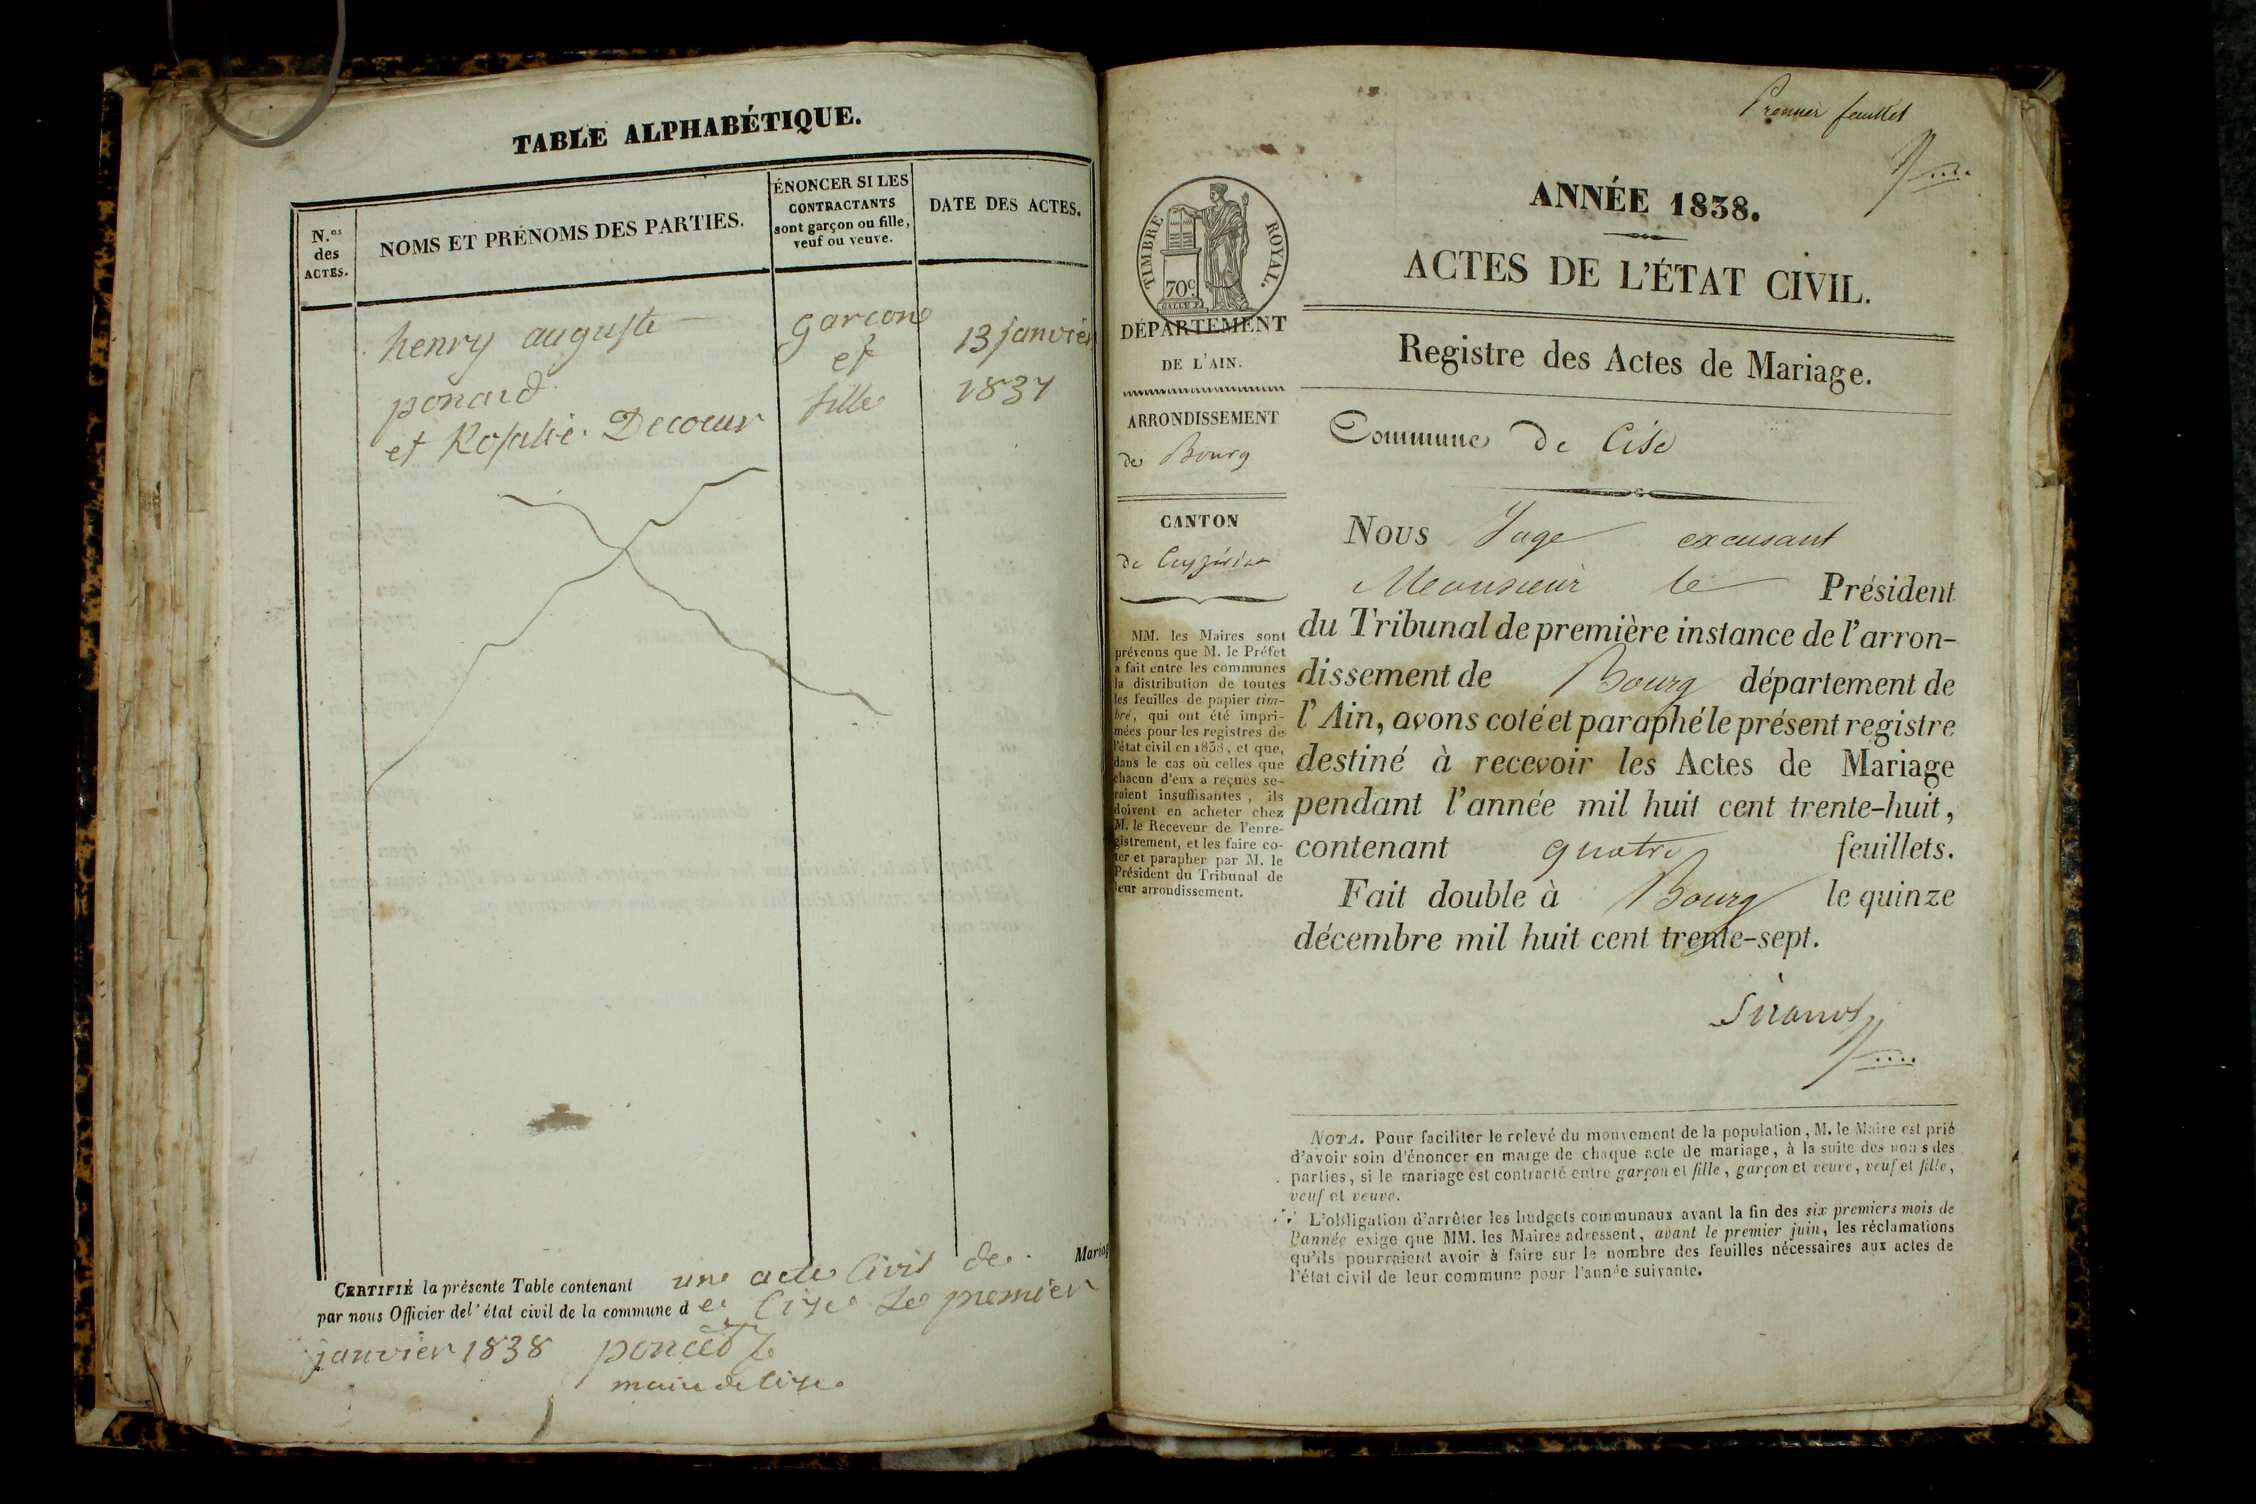 TABLE ALPHABÉTIQUE.
N.os
des
ACTES.
NOMS ET PRÉNOMS DES PARTIES.
ÉNONCER SI LES
CONTRACTANTS
sont garçon ou fille,
veuf ou veuve.
DATE DES ACTES.
henry auguste
ponard
et Rosalie Decoeur
garcon
et
fille
13 janvier
1837
CERTIFIÉ la présente Table contenant une acte Civil de Mariag
par nous Officier de l'état civil de la commune de Cize Le premier
janvier 1838 poncet
maire de Cize
Premier feuillet
TIMBRE ROYAL.
70c
DÉPARTEMENT
DE L'AIN.
ARRONDISSEMENT
de Bourg
CANTON
de Ceyzériat
MM. les Maires sont
prévenus que M. le Préfet
a fait entre les communes
la distribution de toutes
les feuilles de papier tim-
bré, qui ont été impri-
mées pour les registres de
l'état civil en 1838, et que,
dans le cas où celles que
chacun d'eux a reçues se-
raient insuffisantes, ils
doivent en acheter chez
M. le Receveur de l'enre-
gistrement, et les faire co-
ter et parapher par M. le
Président du Tribunal de
leur arrondissement.
ANNÉE 1838.
ACTES DE L'ÉTAT CIVIL.
Registre des Actes de Mariage.
Commune de Cise
Nous Juge excusant
Monsieur le Président
du Tribunal de première instance de l'arron-
dissement de Bourg département de
l'Ain, avons coté et paraphé le présent registre
destiné à recevoir les Actes de Mariage
pendant l'année mil huit cent trente-huit,
contenant quatre feuillets.
Fait double à Bourg le quinze
décembre mil huit cent trente-sept.
NOTA. Pour faciliter le relevé du mouvement de la population, M. le Maire est prié
d'avoir soin d'énoncer en marge de chaque acte de mariage, à la suite des noms des
parties, si le mariage est contracté entre garçon et fille, garçon et veuve, veuf et fille,
veuf et veuve.
L'obligation d'arrêter les budgets communaux avant la fin des six premiers mois de
l'année exige que MM. les Maires adressent, avant le premier juin, les réclamations
qu'ils pourraient avoir à faire sur le nombre des feuilles nécessaires aux actes de
l'état civil de leur commune pour l'année suivante.